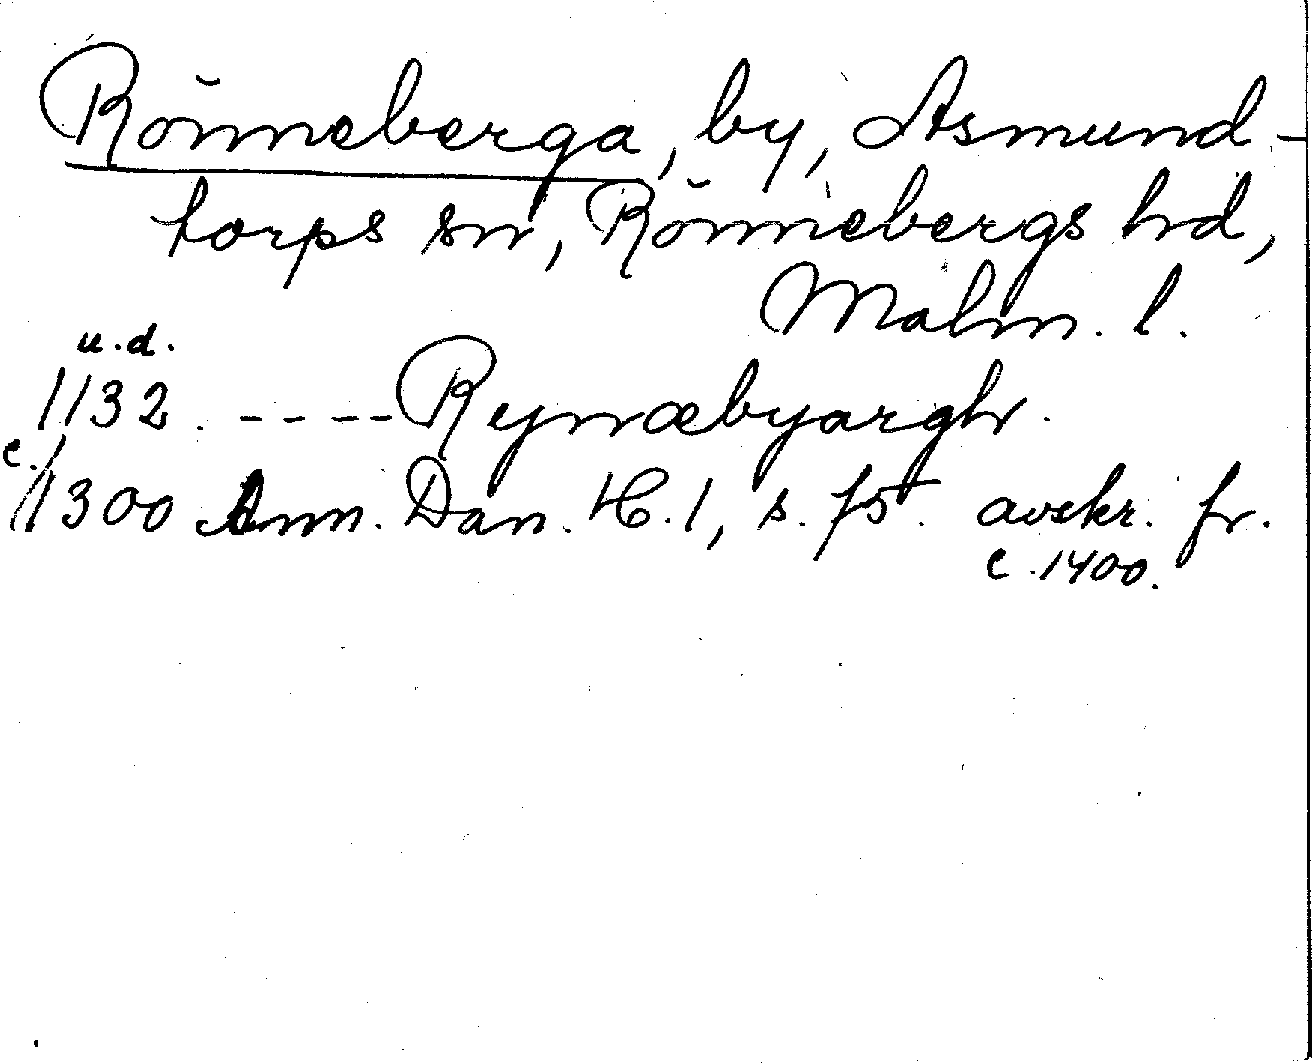 Rönneberga, by, Asmund-
torps sn, Rönnebergs hd,
Malm. l.
u.d.
1132. ----Rynæbyargh.
c./1300 Ann. Dan. H. 1, s. 75. avskr. fr.
c. 1400.